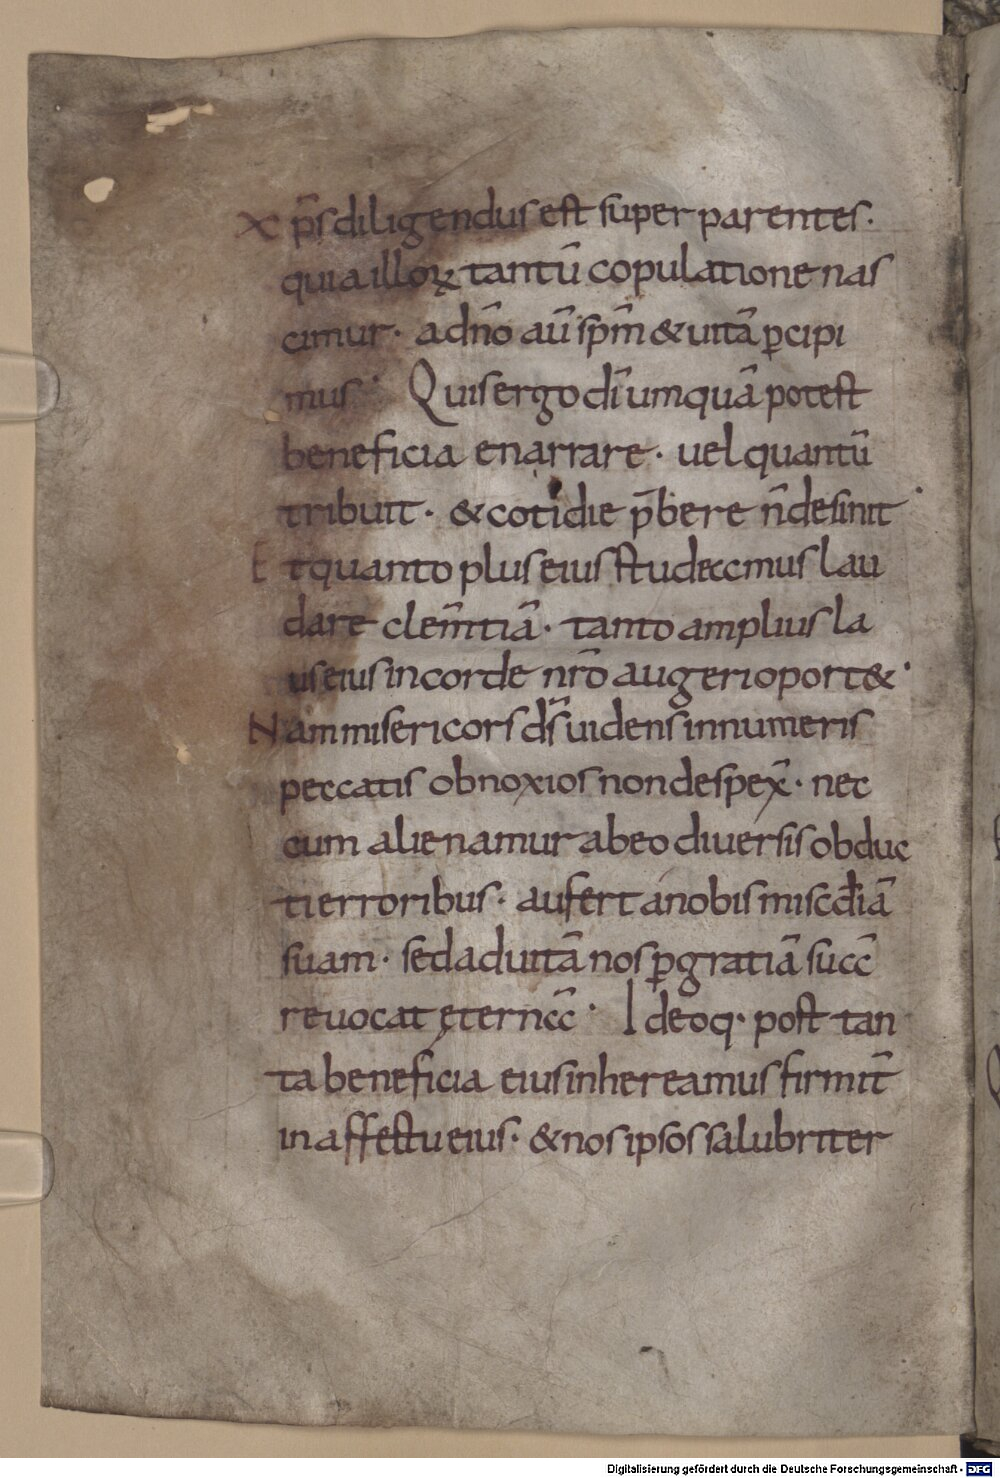 Xp̄s diligendus est super parentes.
quia illoꝝ tantū copulatione nas
cimur· a dn̄o aū sp̄m & uitā ꝑcipi
mus· Quis ergo dī umquā potest
beneficia enarrare· uel quantū
tribuit· & cotidie p̄bere n̄ desinit·
Et quanto plus eius studeamus lau
dare clem̄tiā· tanto amplius la
us eius in corde nr̄o augeri oport&·
Nam misericors ds̄ uidens innumeris
peccatis obnoxios non despex̄· nec
cum alienamur ab eo diuersis obduc
ti erroribus· aufert a nobis misc̄diā
suam· sed ad uitā nos ꝑ gratiā suā
reuocat ęternā· Ideoq· post tan
ta beneficia eius inhereamus firmit̄
in affectu eius· & nos ipsos salubriter
Digitalisierung gefördert durch die Deutsche Forschungsgemeinschaft - DFG